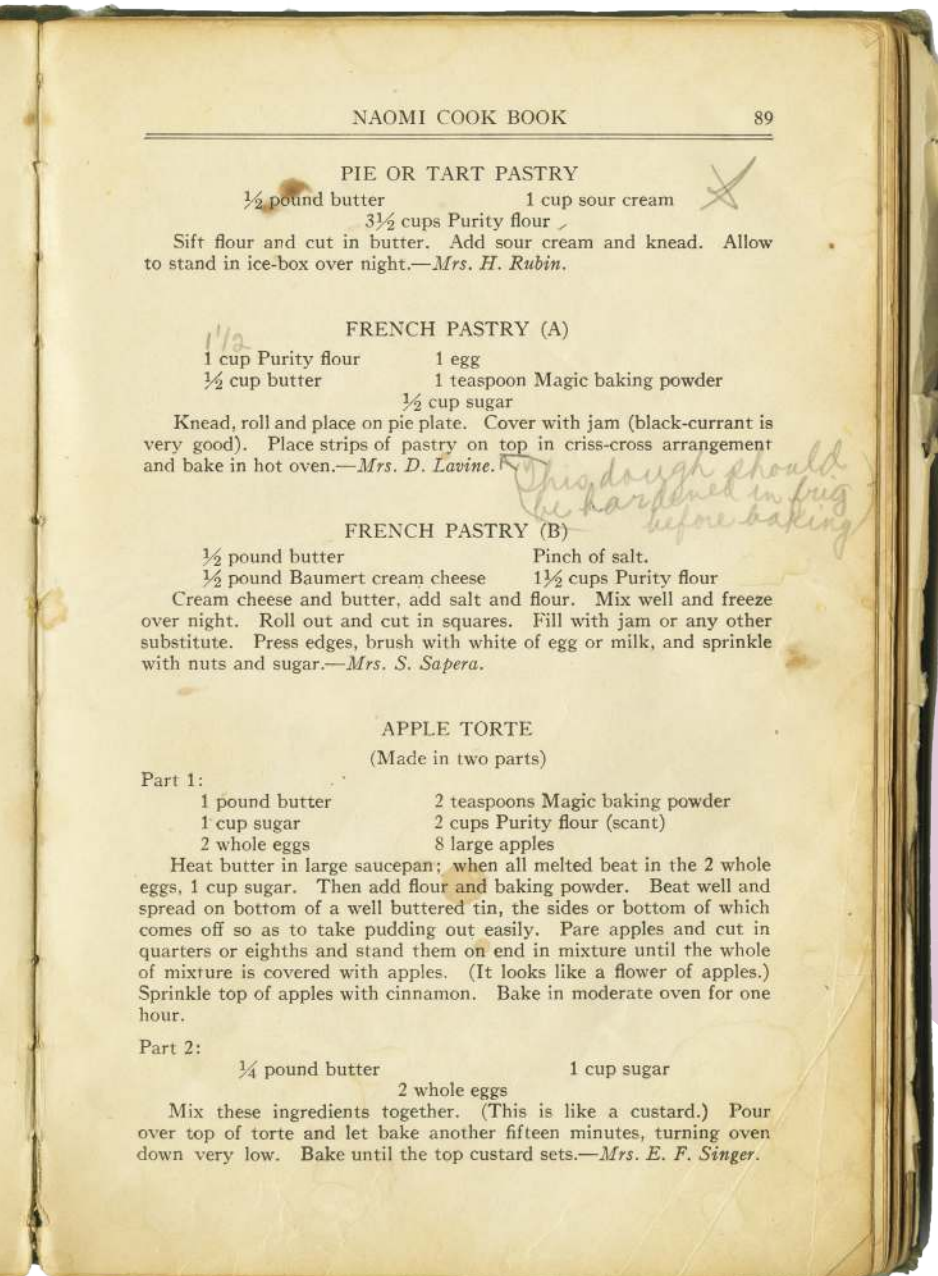 NAOMI COOK BOOK 89
PIE OR TART PASTRY
½ pound butter 1 cup sour cream
3½ cups Purity flour
Sift flour and cut in butter. Add sour cream and knead. Allow
to stand in ice-box over night.—Mrs. H. Rubin.
FRENCH PASTRY (A)
1 1/2
1 cup Purity flour 1 egg
½ cup butter 1 teaspoon Magic baking powder
½ cup sugar
Knead, roll and place on pie plate. Cover with jam (black-currant is
very good). Place strips of pastry on top in criss-cross arrangement
and bake in hot oven.—Mrs. D. Lavine.
This dough should
be hardened in frig
before baking
FRENCH PASTRY (B)
½ pound butter Pinch of salt.
½ pound Baumert cream cheese 1½ cups Purity flour
Cream cheese and butter, add salt and flour. Mix well and freeze
over night. Roll out and cut in squares. Fill with jam or any other
substitute. Press edges, brush with white of egg or milk, and sprinkle
with nuts and sugar.—Mrs. S. Sapera.
APPLE TORTE
(Made in two parts)
Part 1:
1 pound butter 2 teaspoons Magic baking powder
1 cup sugar 2 cups Purity flour (scant)
2 whole eggs 8 large apples
Heat butter in large saucepan; when all melted beat in the 2 whole
eggs, 1 cup sugar. Then add flour and baking powder. Beat well and
spread on bottom of a well buttered tin, the sides or bottom of which
comes off so as to take pudding out easily. Pare apples and cut in
quarters or eighths and stand them on end in mixture until the whole
of mixture is covered with apples. (It looks like a flower of apples.)
Sprinkle top of apples with cinnamon. Bake in moderate oven for one
hour.
Part 2:
¼ pound butter 1 cup sugar
2 whole eggs
Mix these ingredients together. (This is like a custard.) Pour
over top of torte and let bake another fifteen minutes, turning oven
down very low. Bake until the top custard sets.—Mrs. E. F. Singer.